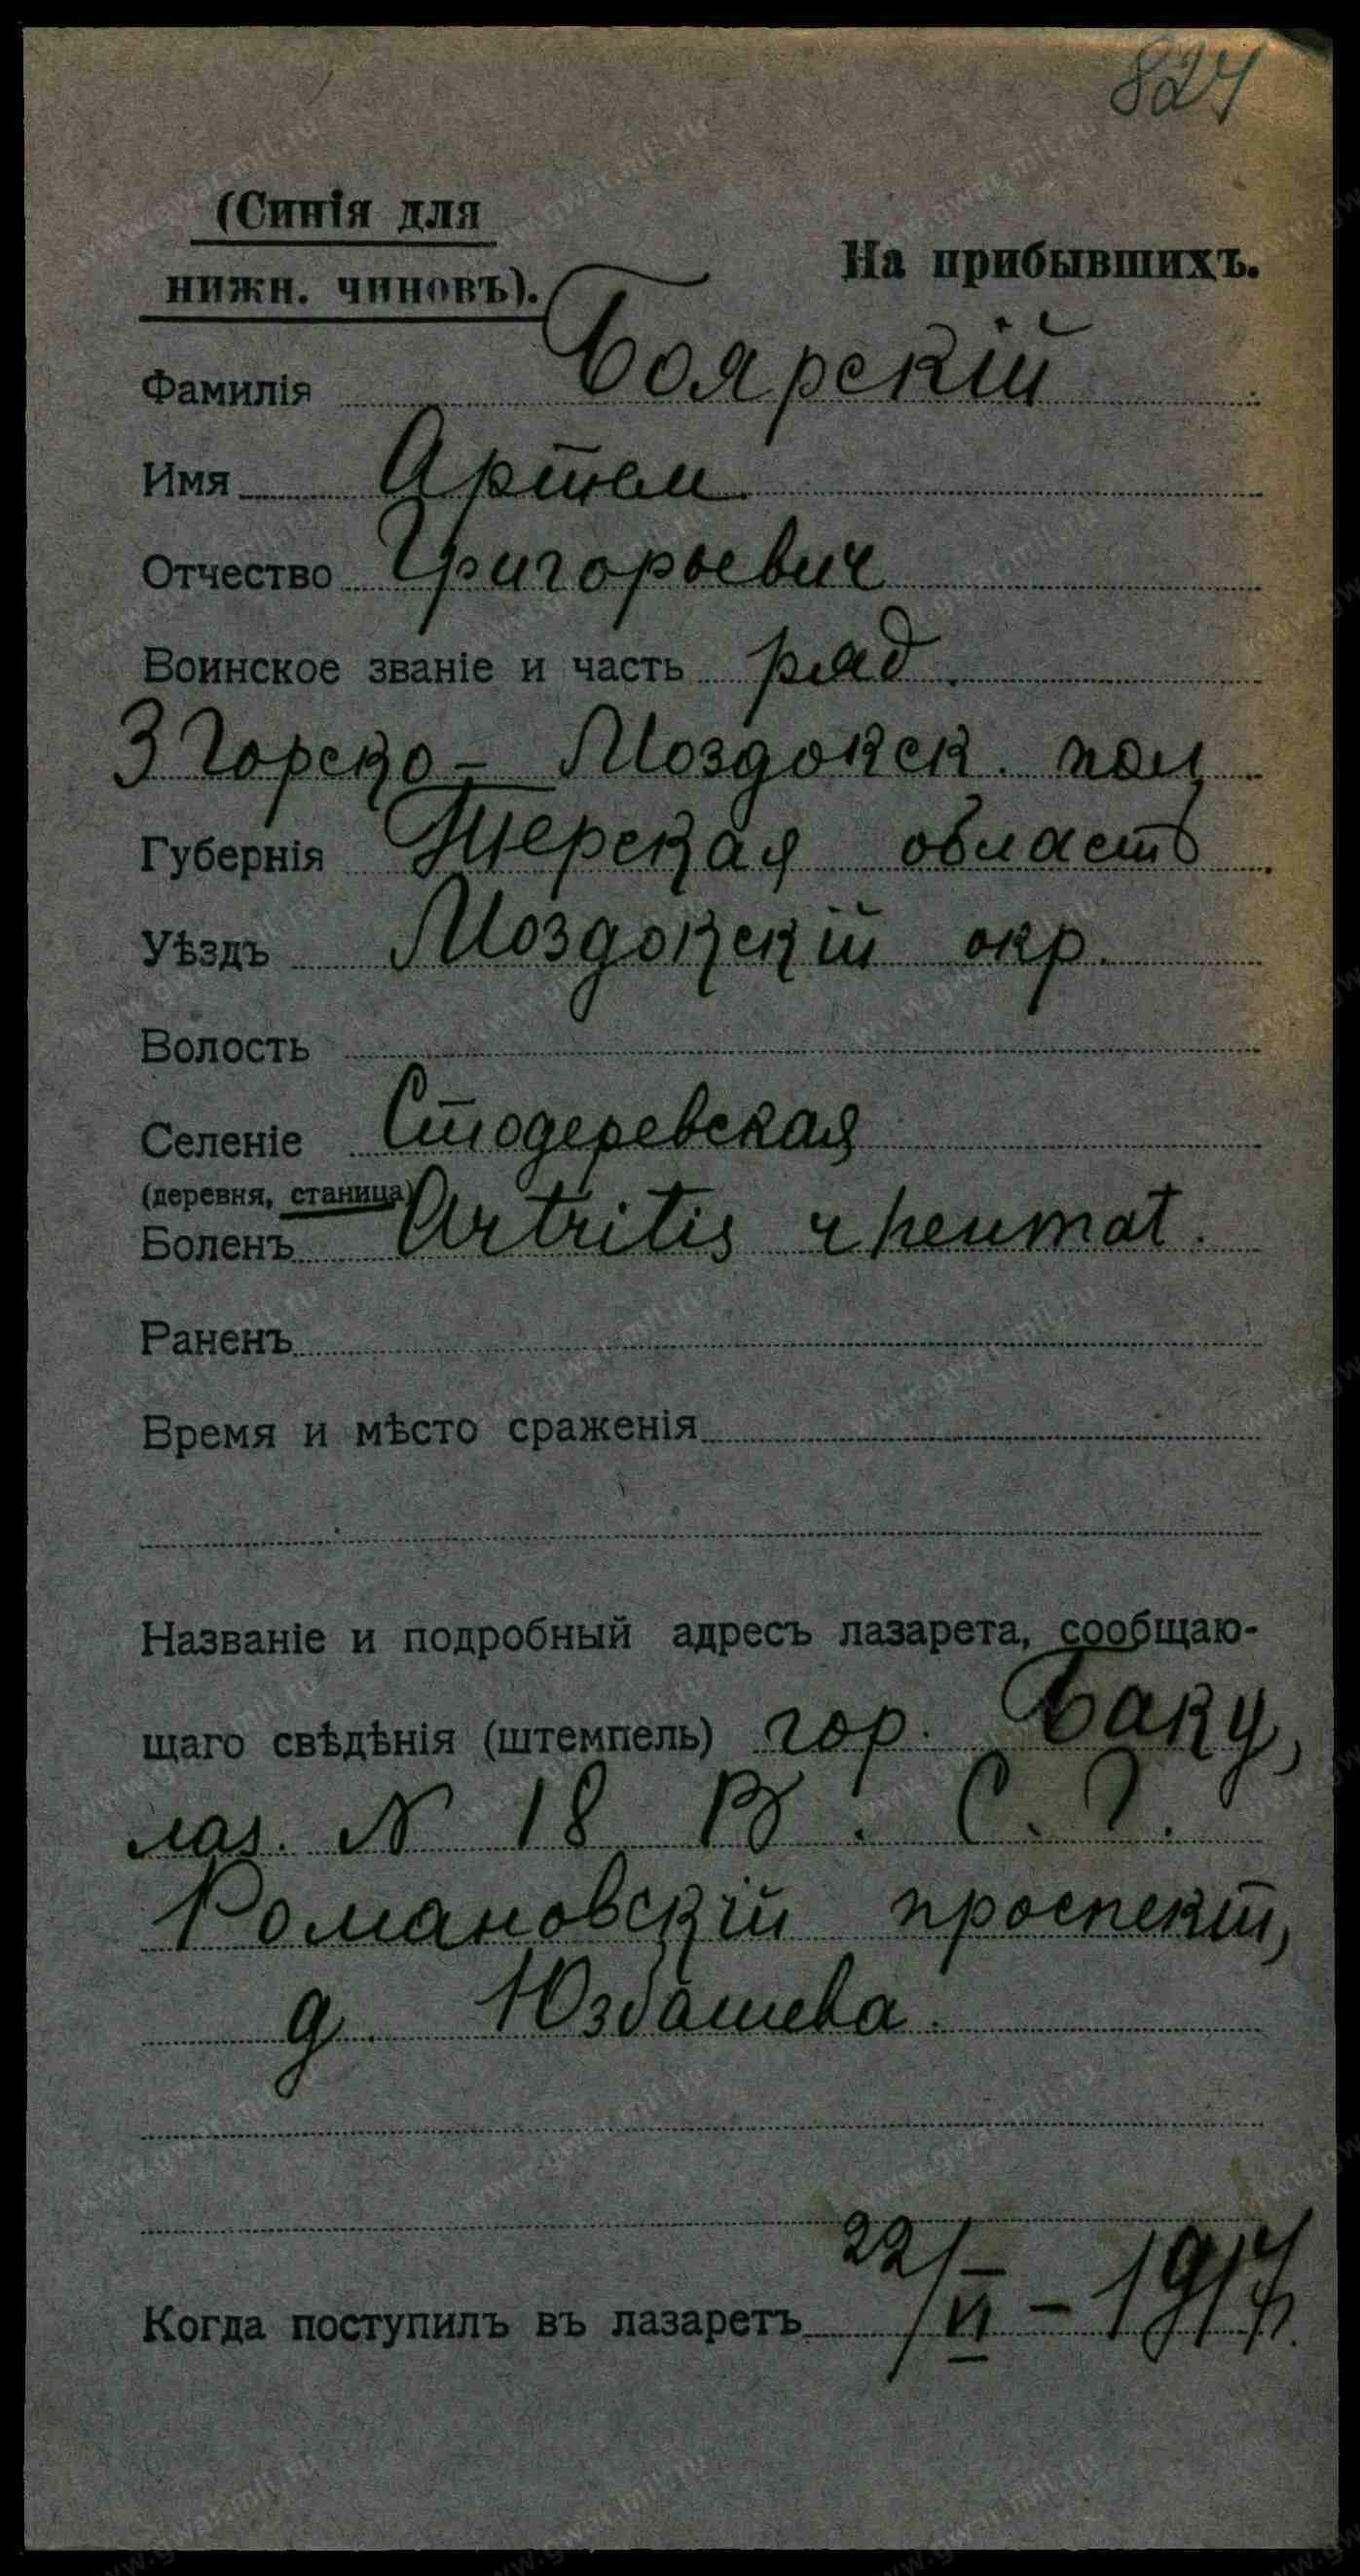 824
(Синія для
нижн. чиновъ).
На прибывшихъ.
Фамилія Боярскій
Имя Артем
Отчество Григорьевич
Воинское званіе и часть ряд.
3 Горско-Моздокск. пол
Губернія Терская область
Уѣздъ Моздокскій окр.
Волость
Селеніе Стодеревская
(деревня, станица)
Боленъ Artritis rheumat.
Раненъ
Время и мѣсто сраженія
Названіе и подробный адресъ лазарета, сообщаю-
щаго свѣдѣнія (штемпель) гор. Баку,
лаз. N 18 В. С. Г.
Романовскій проспект,
д. Юзбашева.
Когда поступилъ въ лазаретъ 22/VI - 1917 г.
www.gwar.mil.ru